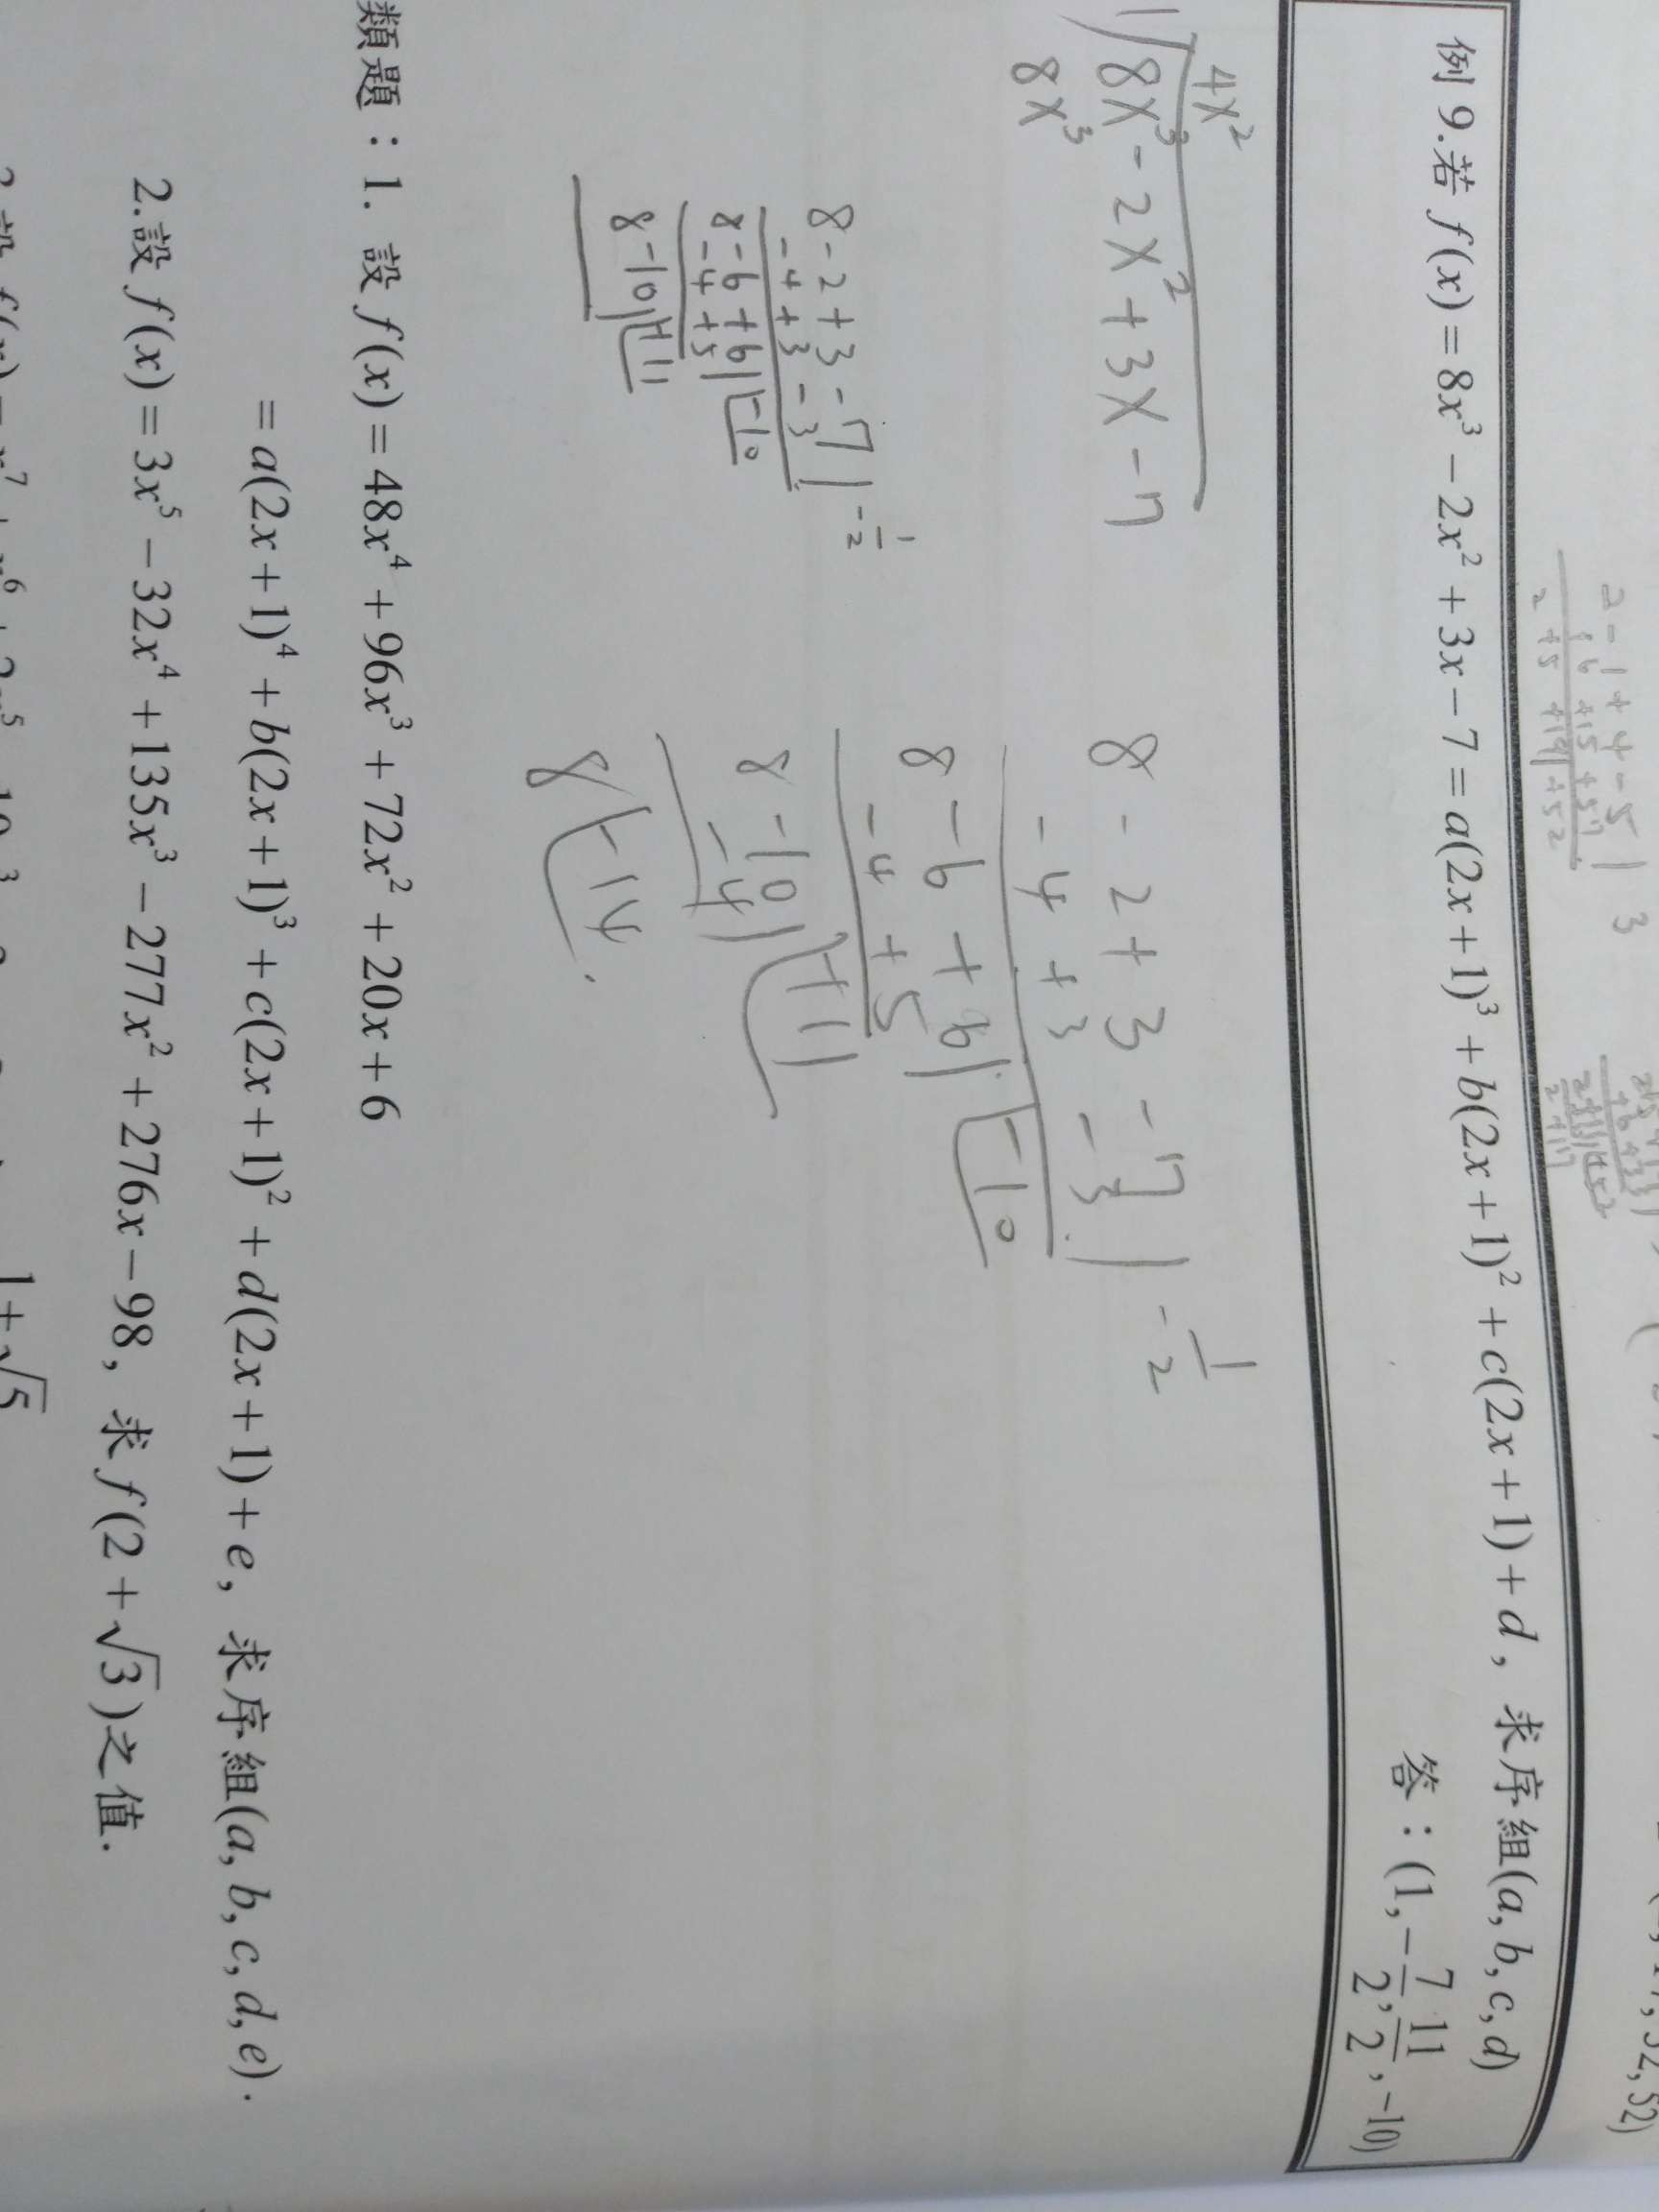 2 - 1 + 4 - 5 | 3
+6 +15 +57
2 +5 +19 +52
例 9.若 f(x) = 8x³ − 2x² + 3x − 7 = a(2x+1)³ + b(2x+1)² + c(2x+1) + d, 求序組(a, b, c, d)
答：(1, −7/2, 11/2, −10)
4x²
8x³ - 2x² + 3x - 7
8x³
8 - 2 + 3 - 7 | -1/2
- 4 + 3 - 3
8 - 6 + 6 | - 10
- 4 + 5
8 - 10 | + 11
- 4
8 | - 14
8 - 2 + 3 - 7 | -1/2
- 4 + 3 - 3
8 - 6 + 6 | - 10
- 4 + 5
8 - 10 | + 11
類題：1. 設 f(x) = 48x⁴ + 96x³ + 72x² + 20x + 6
= a(2x+1)⁴ + b(2x+1)³ + c(2x+1)² + d(2x+1) + e, 求序組(a, b, c, d, e).
2.設 f(x) = 3x⁵ − 32x⁴ + 135x³ − 277x² + 276x − 98, 求 f(2+√3)之值.